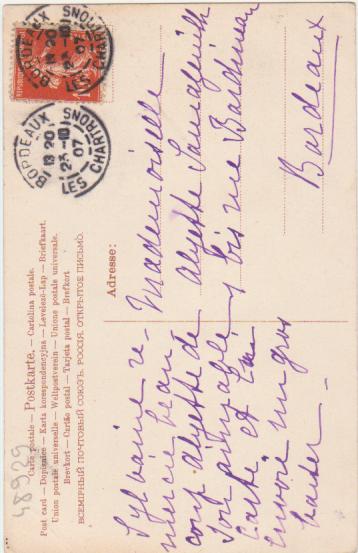 BORDEAUX
13 20
23 -10
07
LES CHARTRONS
BORDEAUX
13 20
23 -10
07
LES CHARTRONS
Carte postale. — Postkarte. — Cartolina postale.
Post card — Dopisnice — Karta korespondencyjna — Levelezö-Lap — Briefkaart.
Union postale universelle. — Weltpostverein — Unione postale universale.
Brevkort — Cartão postal — Tarjeta postal — Brefkort
ВСЕМІРНЫЙ ПОЧТОВЫЙ СОЮЗЪ. РОССІЯ. ОТКРЫТОЕ ПИСЬМО.
48929
Adresse:
Mademoiselle
Alyette
bis rue
Bordeaux
Sylvine re
mercie beau
coup Alyette de
son
Carte et
Envoie un gros
baiser